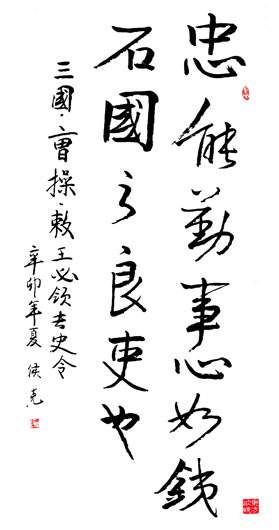 忠能勤事心如鐵
石國之良吏也
三國·曹操·敕王必領長史令
辛卯年夏 侯克